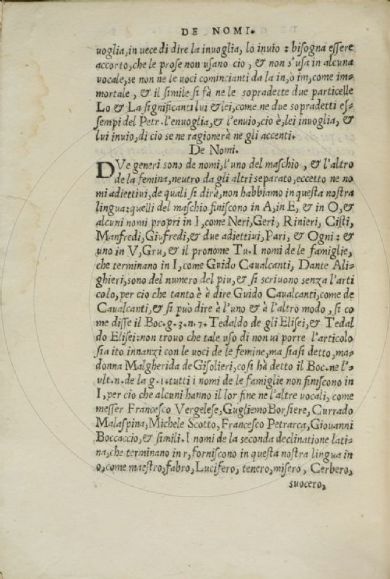 DE NOMI.
uoglia, in uece di dire la inuoglia, lo inuio: bisogna essere
accorto, che le prose non usano cio, & non s'usa in alcuna
uocale, se non ne le uoci comincianti da la in, o im, come im-
mortale, & il simile si fà ne le sopradette due particelle
Lo & La significanti lui & lei, come ne due sopradetti es-
sempi del Petr. l'enuoglia, & l'enuio, cio è, lei inuoglia, &
lui inuio, di cio se ne ragionerà ne gli accenti.
De Nomi.
DVe generi sono de nomi, l'uno del maschio, & l'altro
de la femina, neutro da gli altri separato, eccetto ne no
mi adiettiui, de quali si dirà, non habbiamo in questa nostra
lingua: quelli del maschio finiscono in A, in E, & in O, &
alcuni nomi propri in I, come Neri, Geri, Rinieri, Cisti,
Manfredi, Giufredi, & due adiettiui, Pari, & Ogni: &
uno in V, Gru, & il pronome Tu. I nomi de le famiglie,
che terminano in I, come Guido Caualcanti, Dante Ali-
ghieri, sono del numero del piu, & si scriuono senza l'arti
colo, per cio che tanto è à dire Guido Caualcanti, come de
Caualcanti, & si può dire à l'uno & à l'altro modo, si co
me disse il Boc. g. 3. n. 7. Tedaldo de gli Elisei, & Tedal
do Elisei: non trouo che tale uso di non ui porre l'articolo
sia ito innanzi con le uoci de le femine, ma siasi detto, ma-
donna Malgherida de Gisolieri, così hà detto il Boc. ne l'u-
lt. n. de la g. 1. tutti i nomi de le famiglie non finiscono in
I, per cio che alcuni hanno il lor fine ne l'altre uocali, come
messer Francesco Vergelese, Gugliemo Borsiere, Currado
Malaspina, Michele Scotto, Francesco Petrarca, Giouanni
Boccaccio, & simili. I nomi de la seconda declinatione lati-
na, che terminano in r, forniscono in questa nostra lingua in
o, come maestro, fabro, Lucifero, tenero, misero, Cerbero,
suocero,